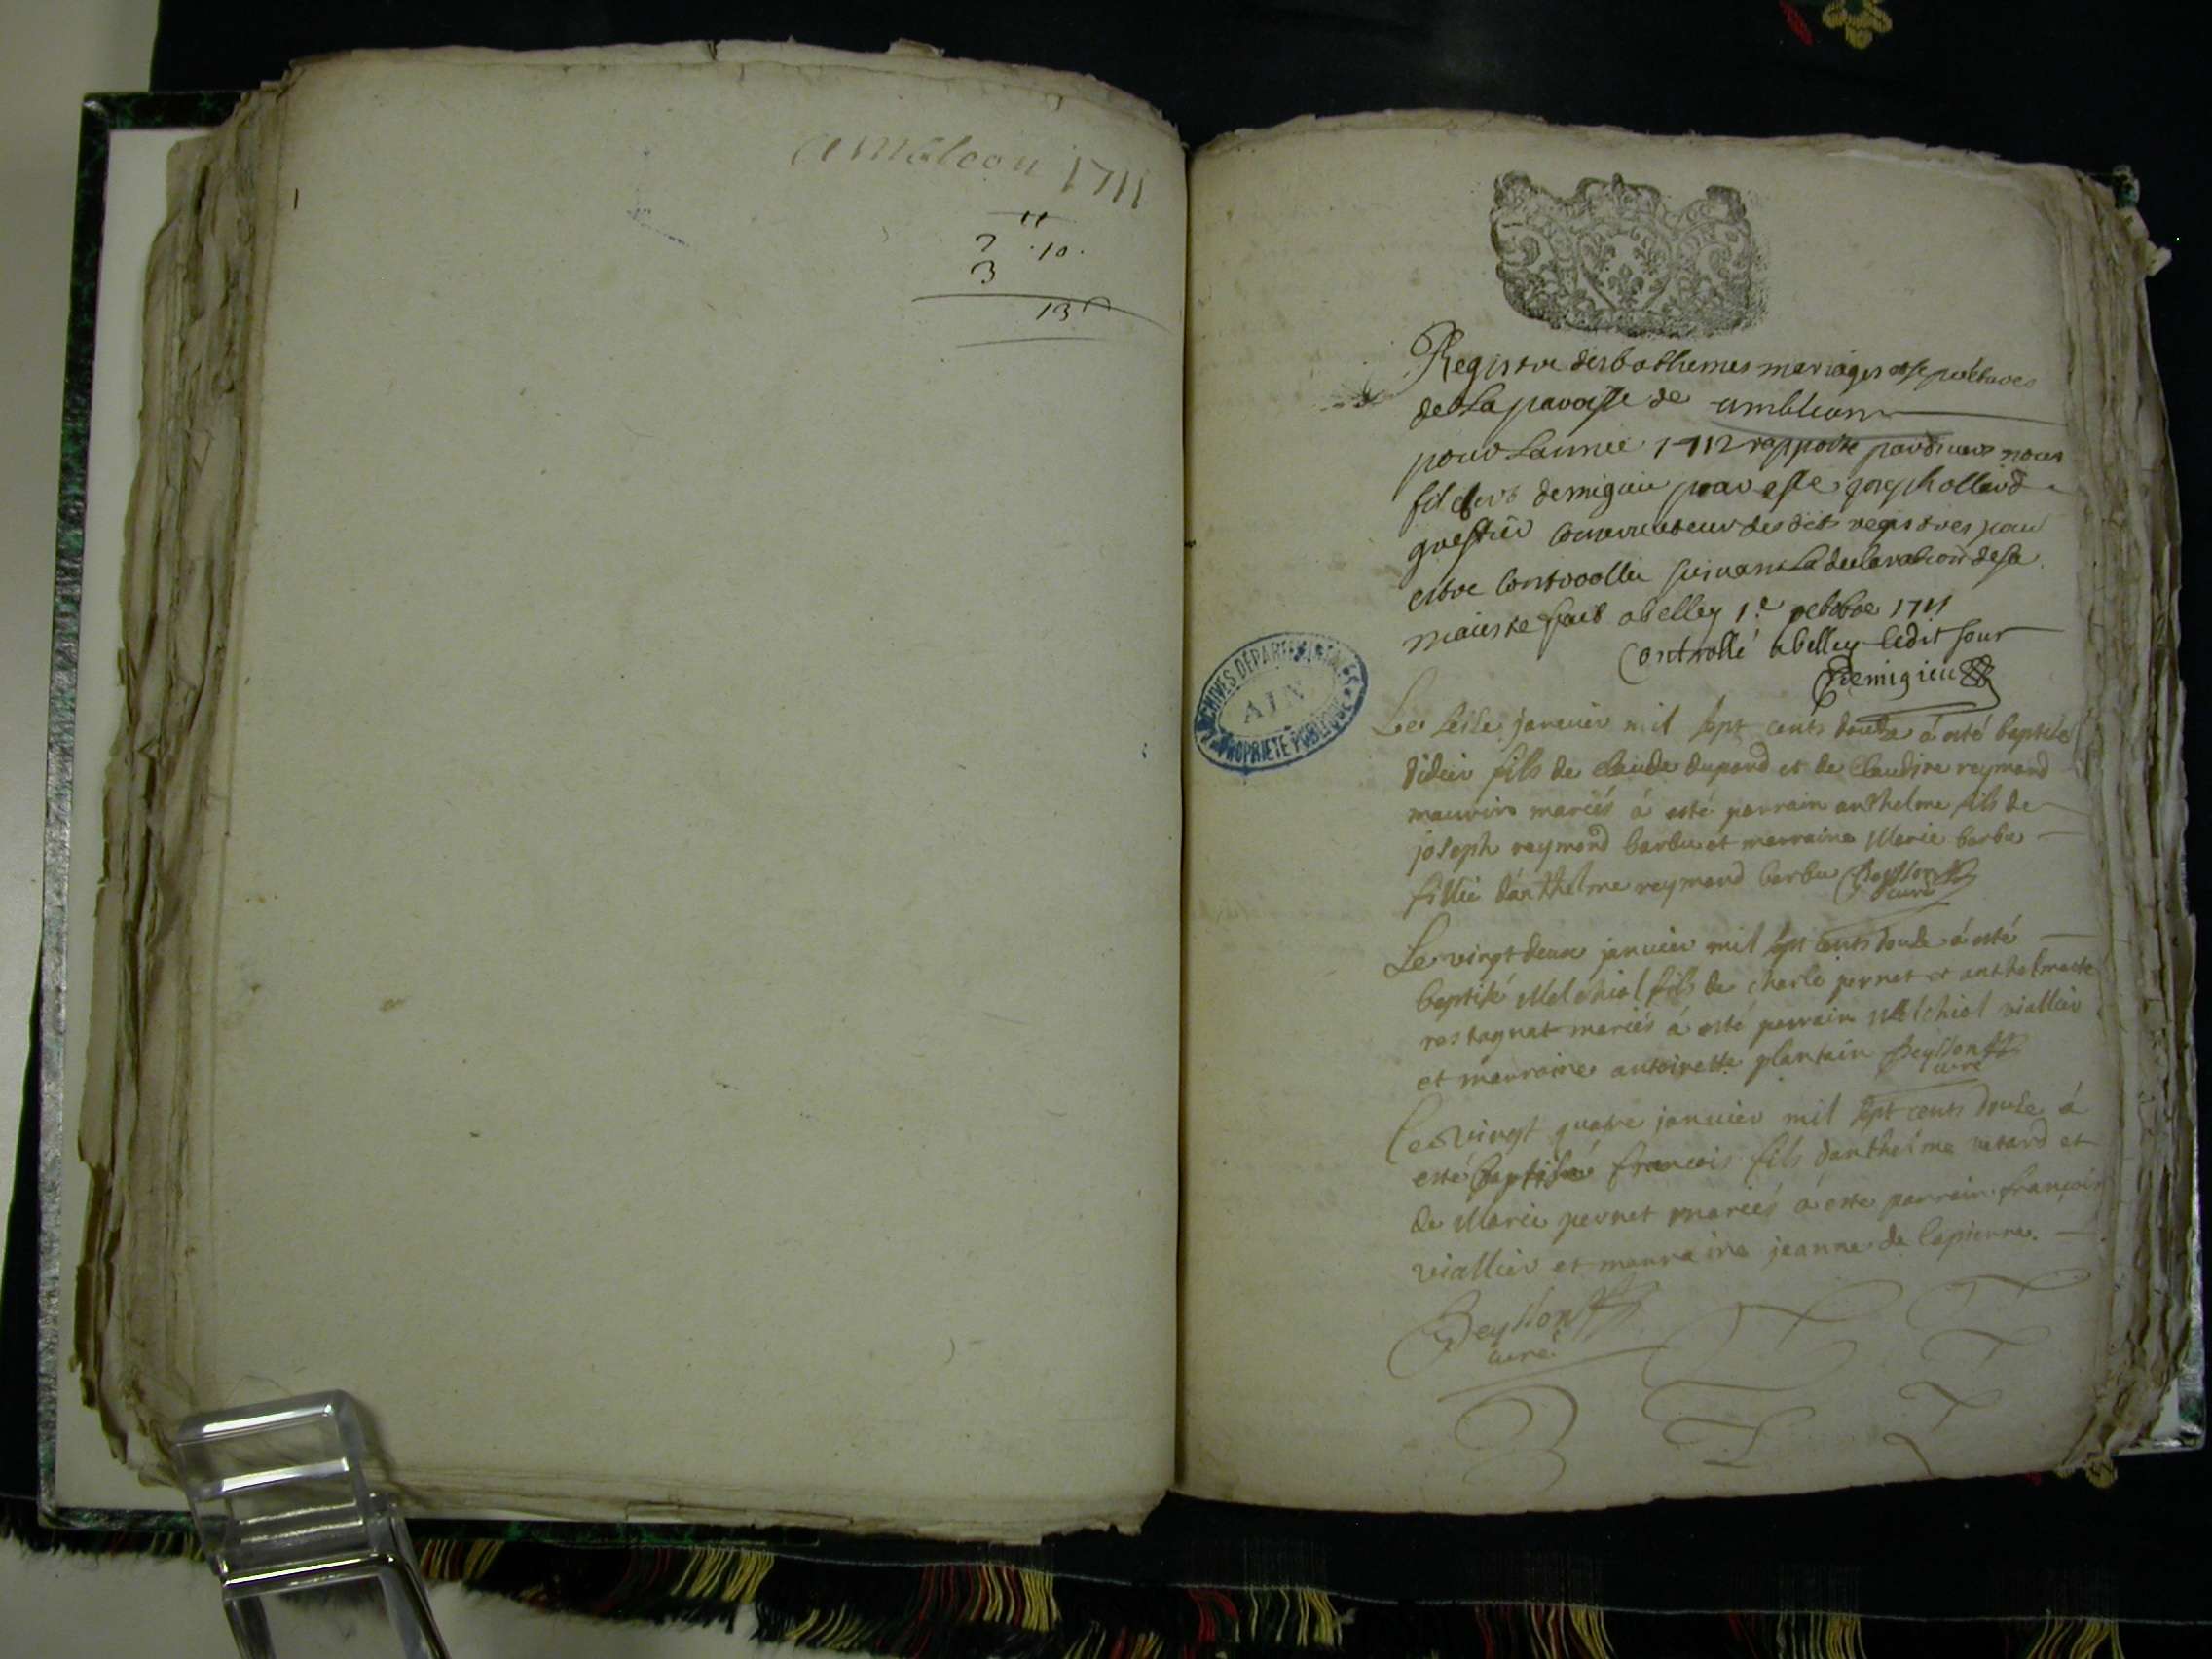 ambleon 1711
11
2 .10.
3
13
Registre des bathemes mariages et sepultures
de La paroisse de ambleon
pour Lannee 1712 par nous
demigieu joseph
greffier Conservateur des dits registres pour
estre Controollee suivant La declaration de sa
maieste fait a belley 1.e 1711
Controllé a belley ledit jour
Demigieu
ARCHIVES DÉPARTEMENTALES
AIN
PROPRIÉTÉ PUBLIQUE
Le seize janvier mil sept cents douze á esté baptisé
didier fils de claude dupond et de Claudine reymond
mariés á esté parrain anthelme fils de
joseph reymond barbu et marraine Marie barbu
fillie danthelme reymond barbu Beysson
curé
Le vingt deux janvier mil sept cents douze á esté
baptisé Melchiol fils de charle pernet et anthelmette
rostagnat mariés á esté parrain Melchiol viallier
et marraine antoinette plantain Beysson
curé
Le vingt quatre janvier mil sept cents douze á
esté Baptisé francois fils danthelme et
de Marie pernet mariés á esté parrain françois
viallier et marraine jeanne de lapierre.
Beysson
curé